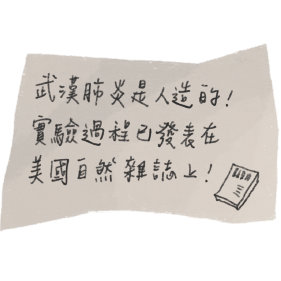 武漢肺炎是人造的!
實驗過程已發表在
美國自然雜誌上!